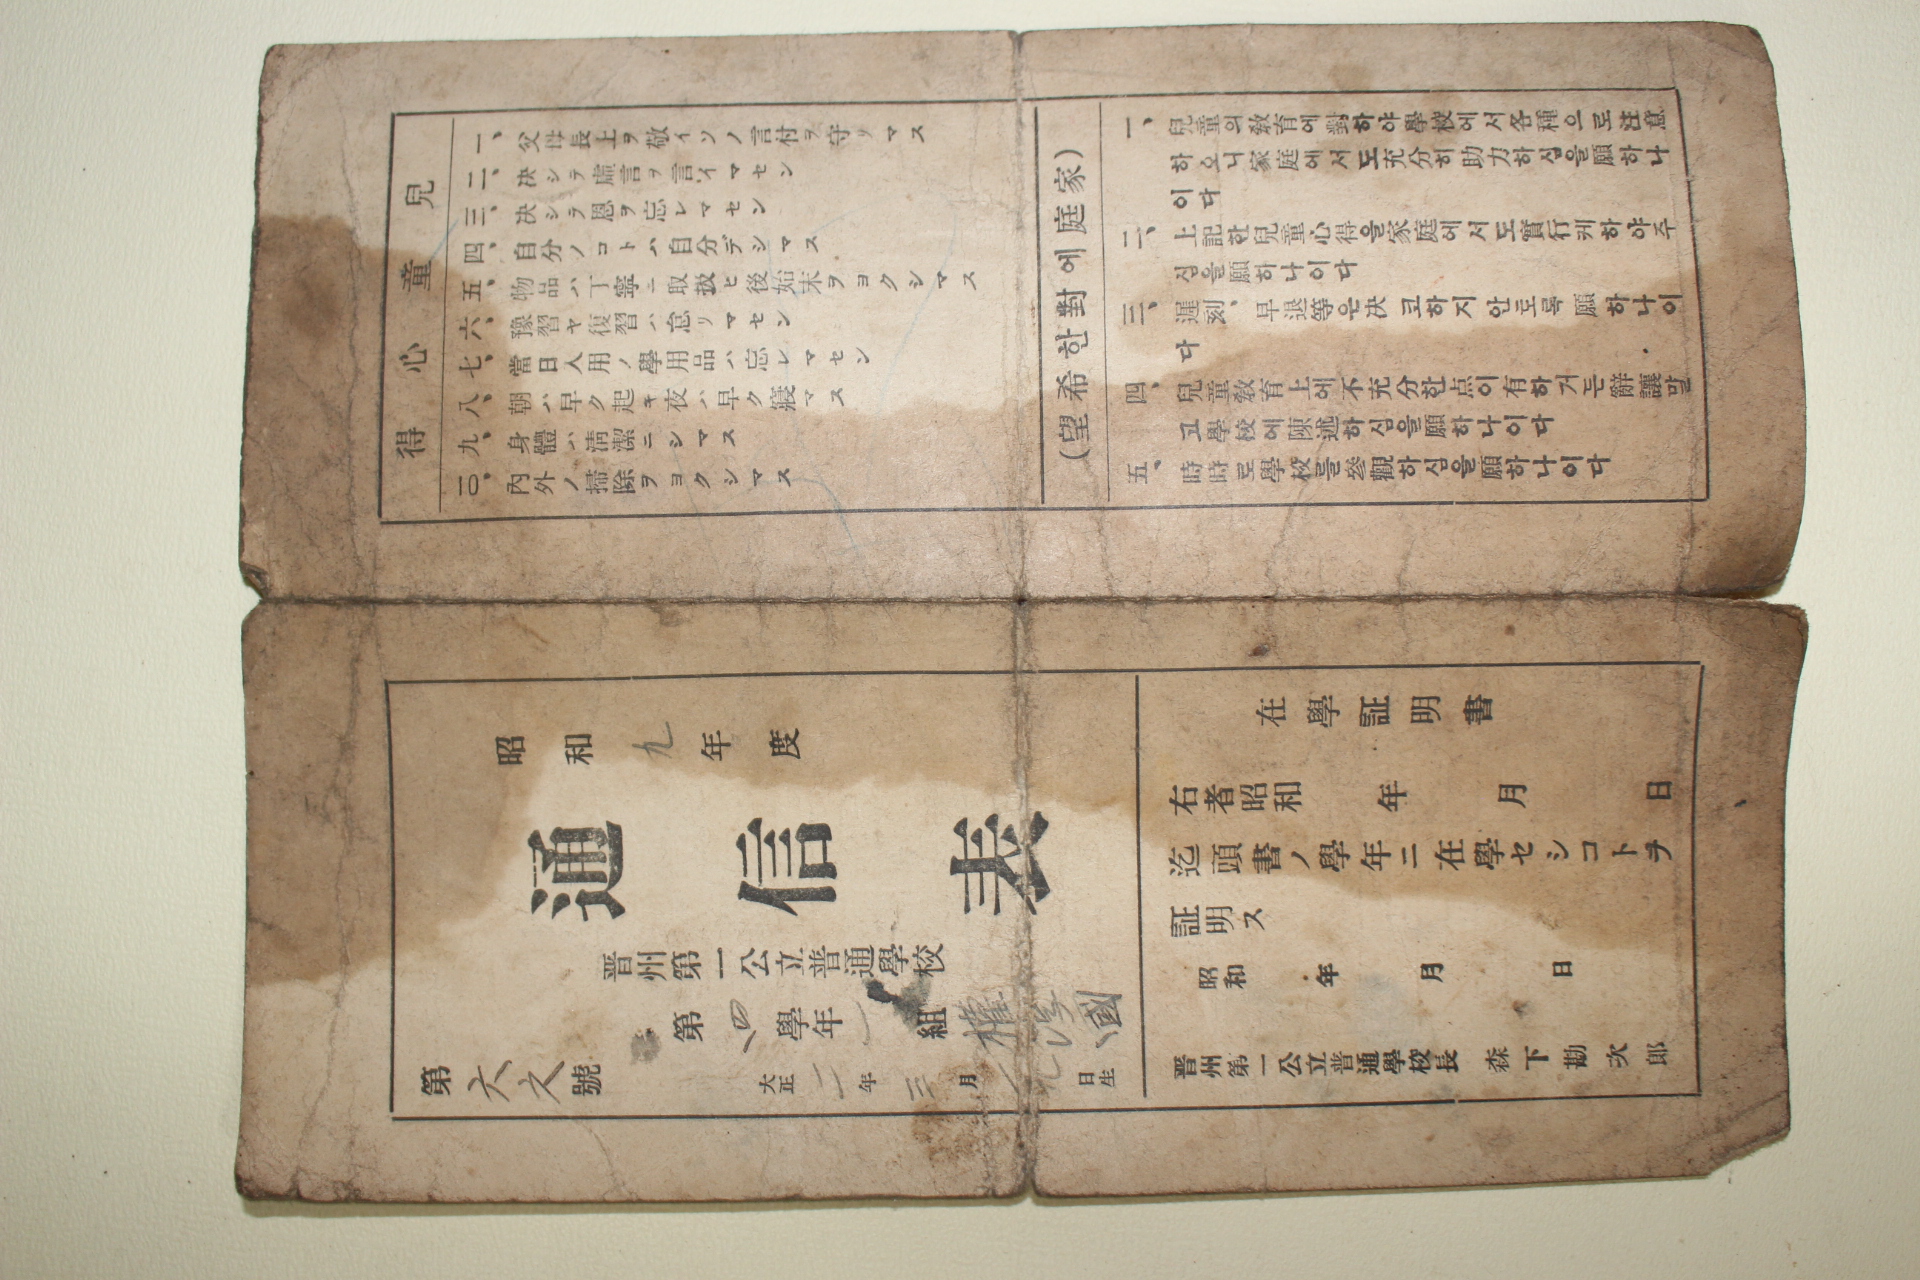 兒童心得
一、父母長上ヲ敬イソノ言付ヲ守リマス
二、决シテ虛言ヲ言イマセン
三、决シテ恩ヲ忘レマセン
四、自分ノコトハ自分デシマス
五、物品ハ丁寧ニ取扱ヒ後始末ヲヨクシマス
六、豫習ヤ復習ハ怠リマセン
七、當日入用ノ學用品ハ忘レマセン
八、朝ハ早ク起キ夜ハ早ク寢マス
九、身體ハ淸潔ニシマス
一〇、內外ノ掃除ヲヨクシマス
(家庭에對한希望)
一、兒童의敎育에對하야學校에서各種으로注意
하오니家庭에서도充分히助力하심을願하나
이다
二、上記한兒童心得을家庭에서도實行케하야주
심을願하나이다
三、遲刻、早退等은决코하지안토록願하나이
다
四、兒童敎育上에不充分한点이有하거든辭讓말
고學校에陳述하심을願하나이다
五、時時로學校를參觀하심을願하나이다
昭和九年度
通信表
晋州第一公立普通學校
第四學年 組 權 國
大正二年三月 九日生
第六 號
在學証明書
右者昭和 年 月 日
迄頭書ノ學年ニ在學セシコトヲ
証明ス
昭和 年 月 日
晋州第一公立普通學校長 森下勘次郎